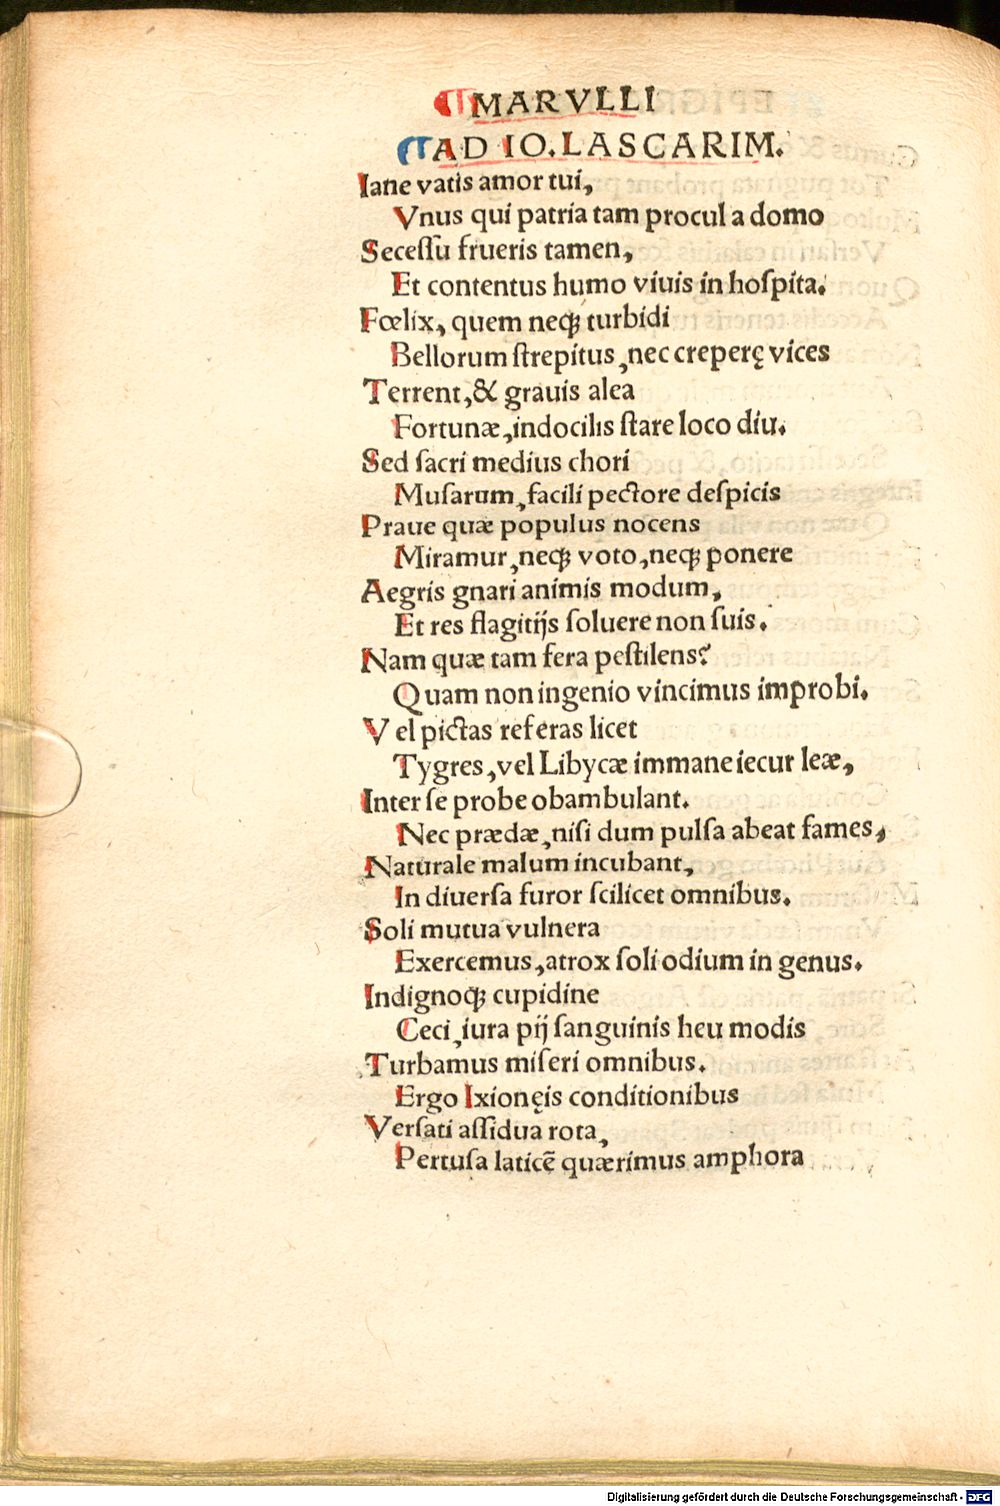 MARVLLI
AD IO. LASCARIM.
Iane vatis amor tui,
Vnus qui patria tam procul a domo
Secessu frueris tamen,
Et contentus humo viuis in hospita.
Fœlix, quem neqꝫ turbidi
Bellorum strepitus, nec creperę vices
Terrent, & grauis alea
Fortunæ, indocilis stare loco diu.
Sed sacri medius chori
Musarum, facili pectore despicis
Praue quæ populus nocens
Miramur, neqꝫ voto, neqꝫ ponere
Aegris gnari animis modum,
Et res flagitijs soluere non suis.
Nam quæ tam fera pestilens?
Quam non ingenio vincimus improbi.
Vel pictas referas licet
Tygres, vel Libycæ immane iecur leæ,
Inter se probe obambulant.
Nec prædæ, nisi dum pulsa abeat fames,
Naturale malum incubant,
In diuersa furor scilicet omnibus.
Soli mutua vulnera
Exercemus, atrox soli odium in genus.
Indignoqꝫ cupidine
Ceci, iura pij sanguinis heu modis
Turbamus miseri omnibus.
Ergo Ixionęis conditionibus
Versati assidua rota,
Pertusa laticē quærimus amphora
Digitalisierung gefördert durch die Deutsche Forschungsgemeinschaft - DFG